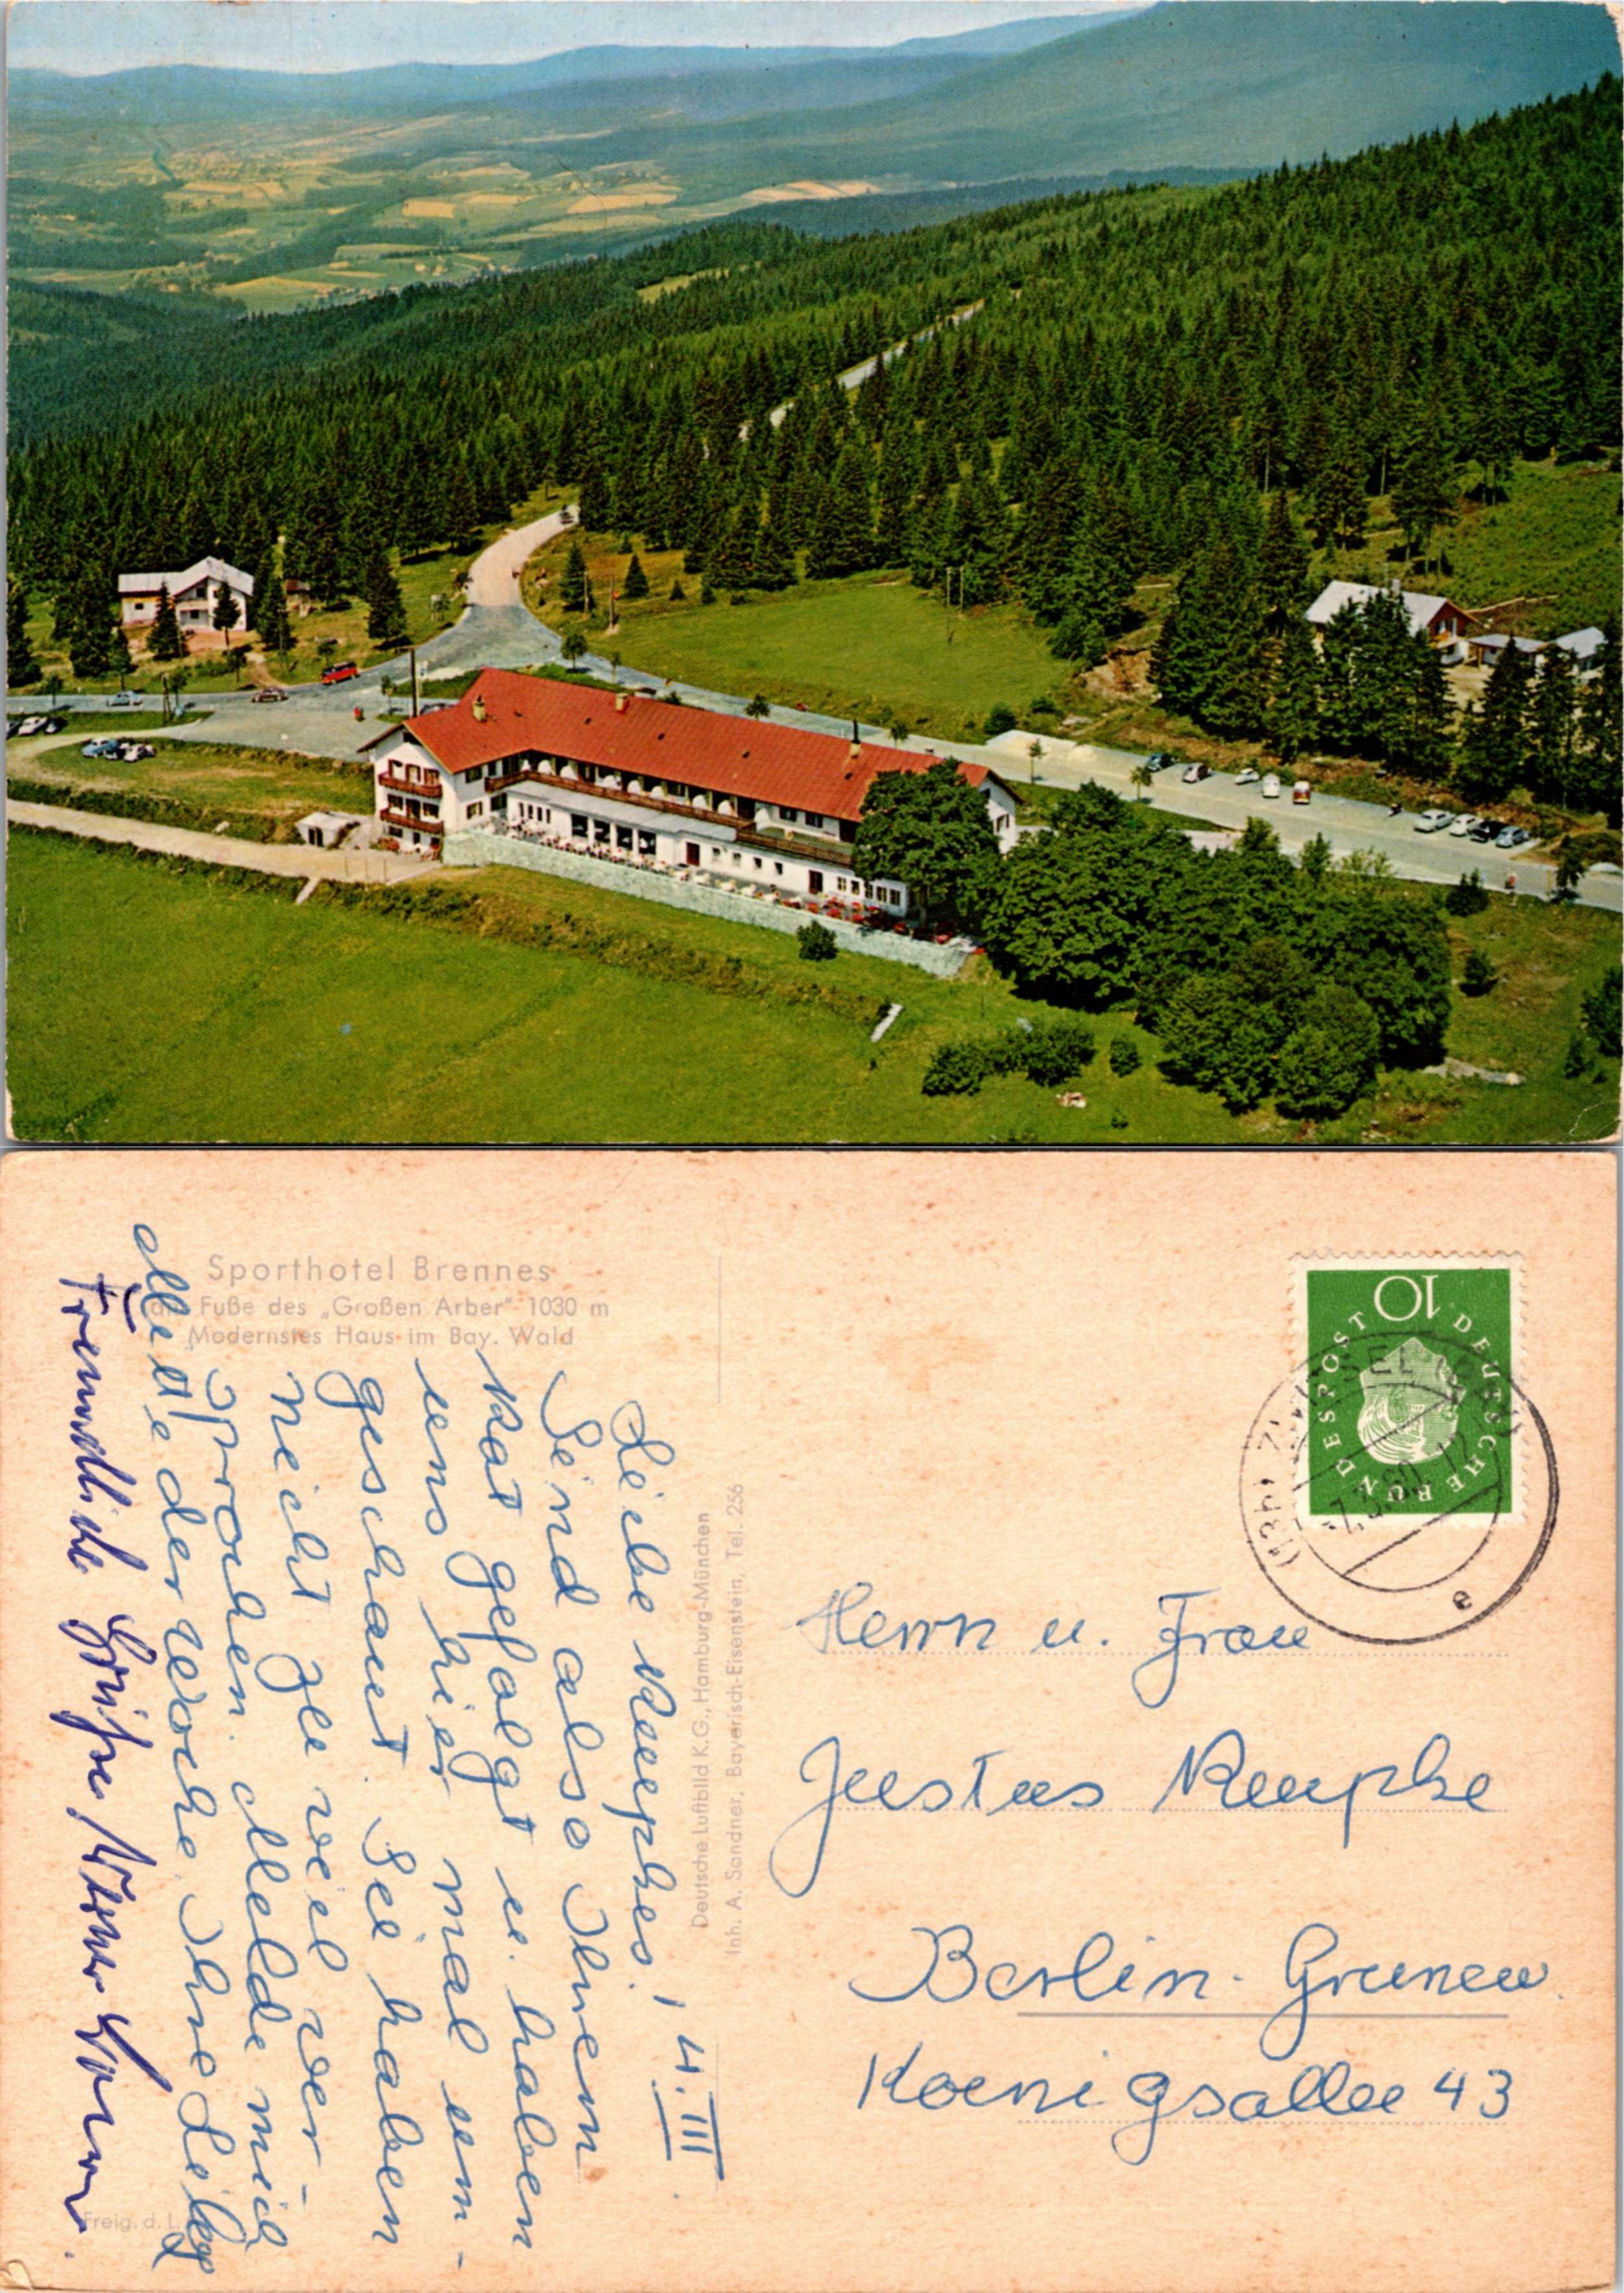 Sporthotel Brennes
am Fuße des „Großen Arber" 1030 m
Modernstes Haus im Bay. Wald
4. III.
Liebe Kuepkes!
Sind also Ihrem
Rat gefolgt u. haben
uns hier mal um-
geschaut. Sie haben
nicht zu viel ver-
sprochen. Melde mich
Ende der Woche. Ihre
Freundliche Grüße
Deutsche Luftbild K.G., Hamburg-München
Inh. A. Sandner, Bayerisch-Eisenstein, Tel. 256
Freig. d. L.
10
DEUTSCHE BUNDESPOST
e
Herrn u. Frau
Justus Kuepke
Berlin-Grunew.
Koenigsallee 43